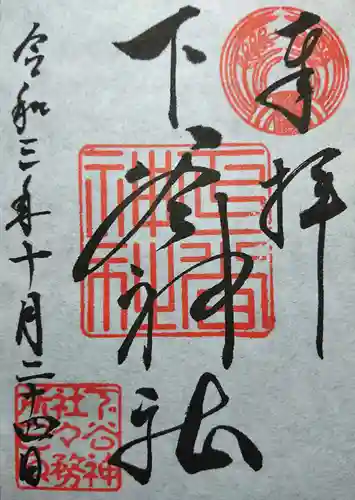 奉拝
下谷神社
令和三年十月二十四日
下谷神社
下谷神
社々務
所印